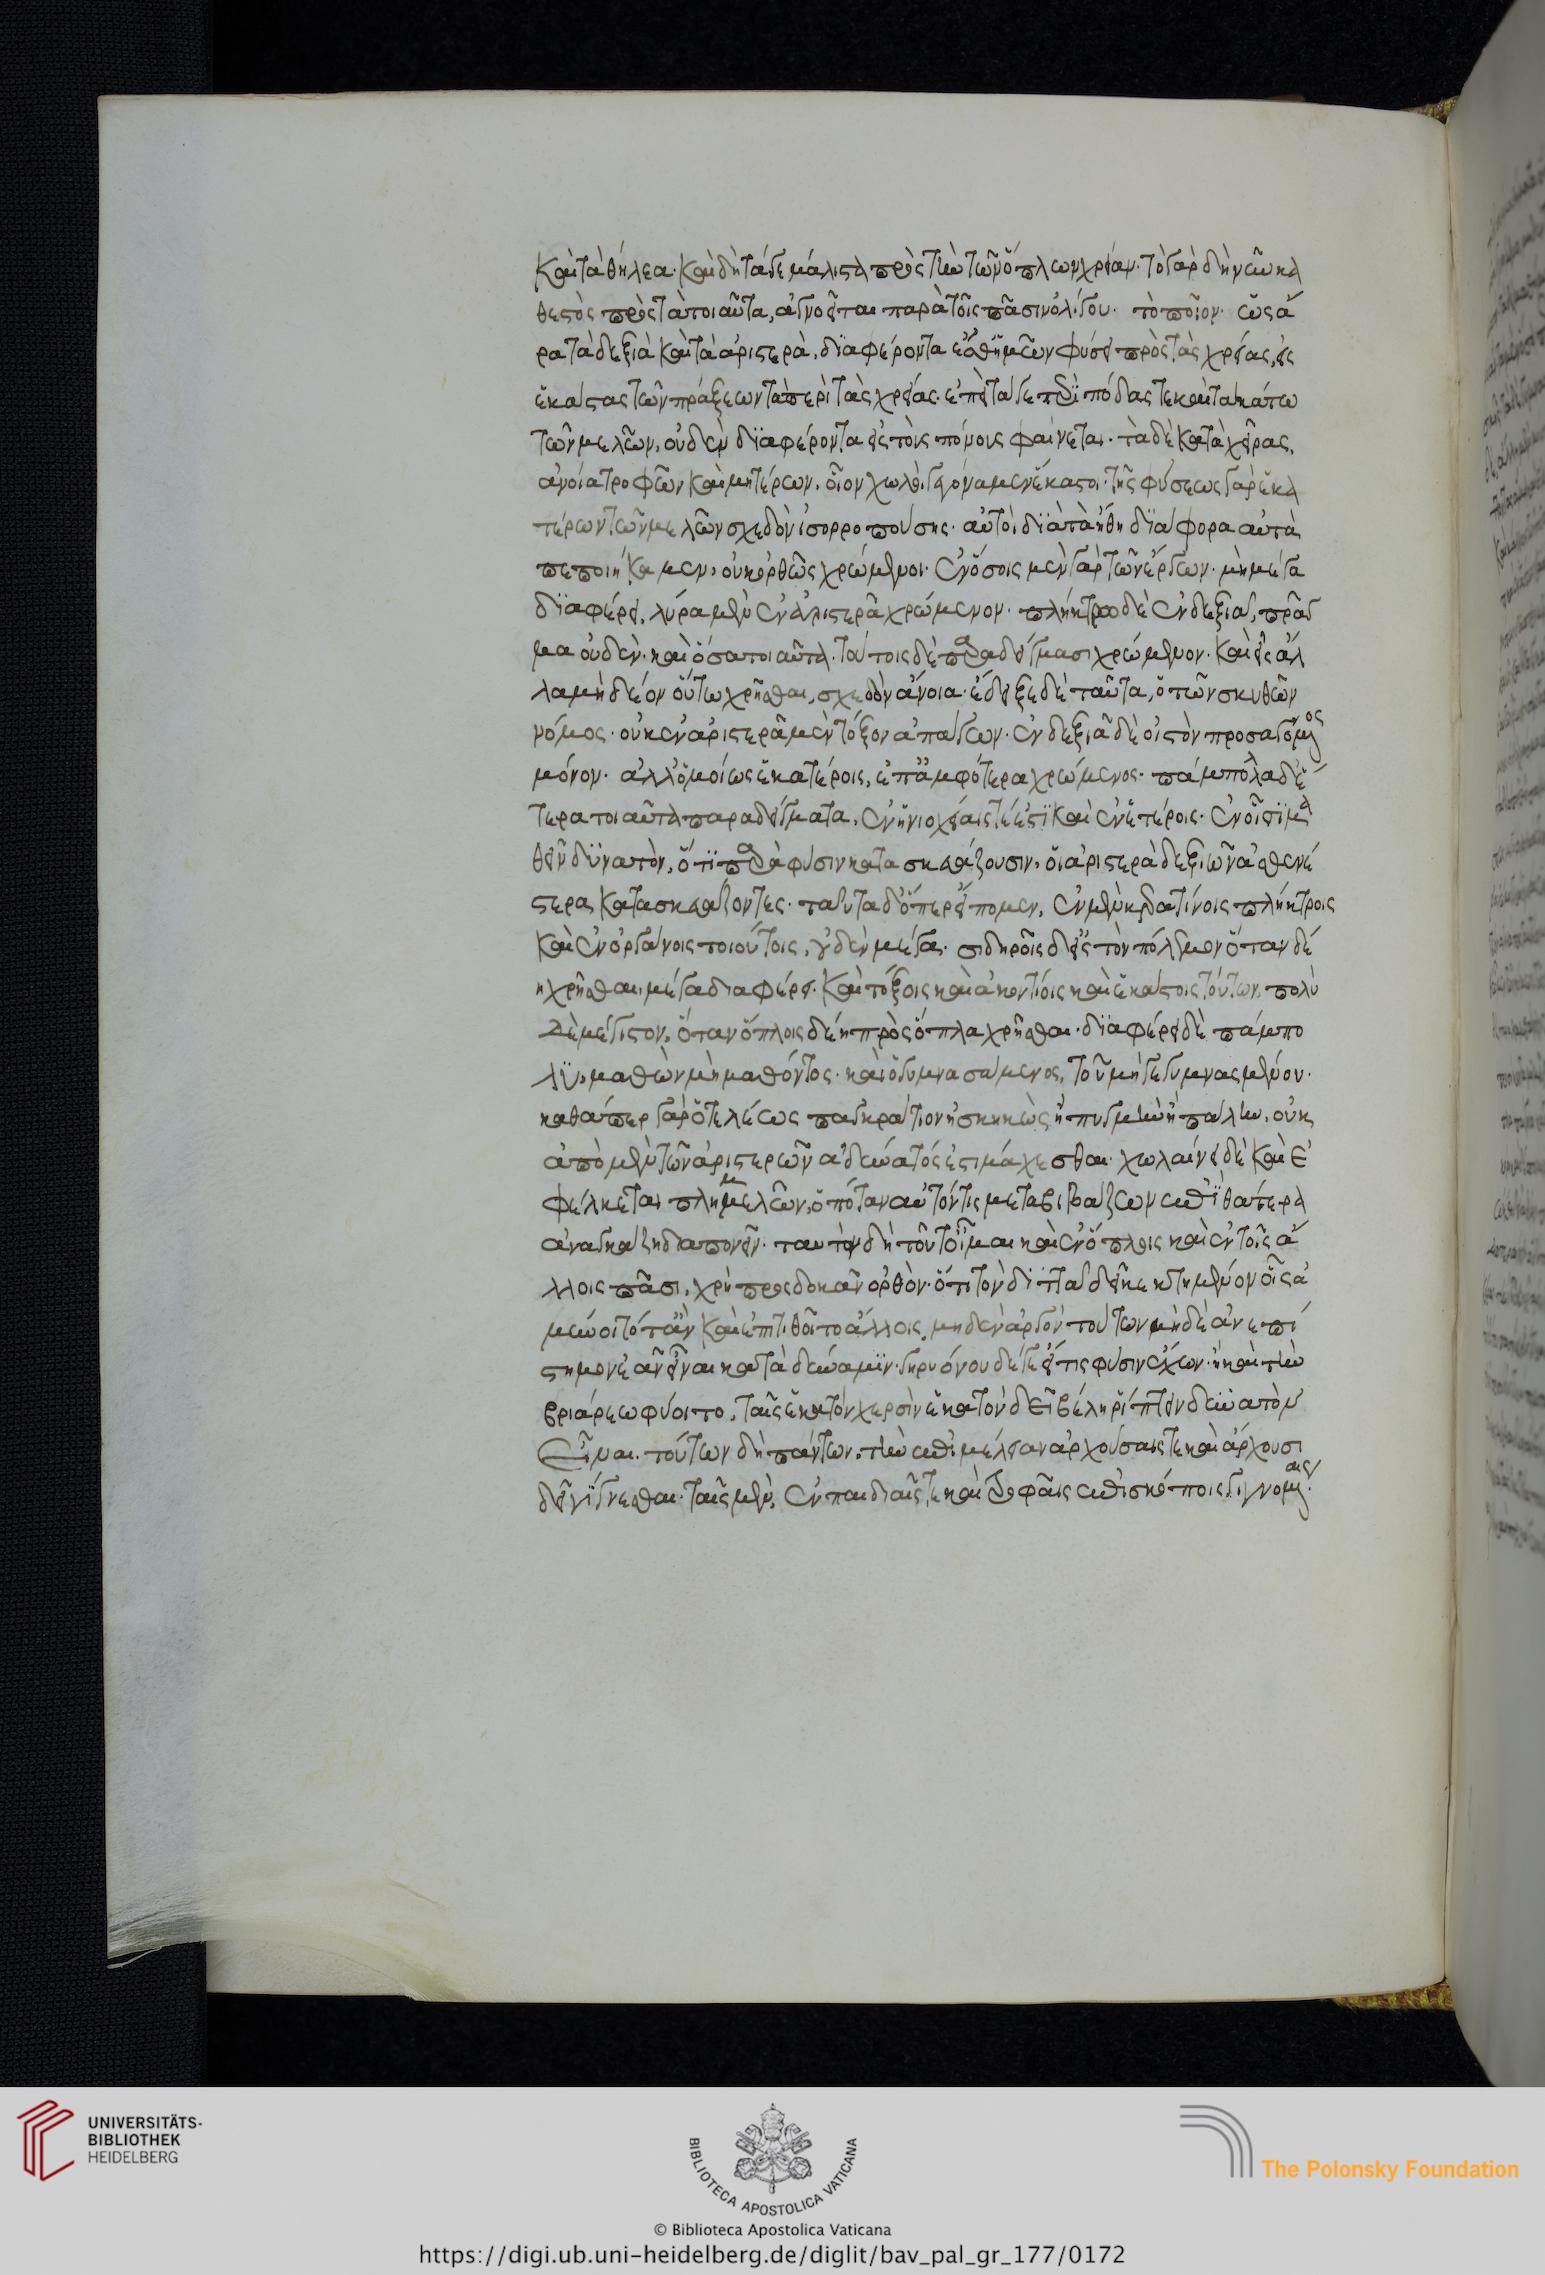 καὶ τὰ θήλεα· καὶ δὴ τά γε μάλιστα πρὸς τὴν τῶν ὅπλων χρείαν· τὸ γὰρ δὴ νῦν κα
θεστὸς πρὸς τὰ τοιαῦτα, ἀγνοεῖται παρὰ τοῖς πᾶσιν ὀλίγου· τὸ ποῖον· ὡς ἄ
ρα τὰ δεξιὰ καὶ τὰ ἀριστερὰ, διαφέροντα ἐσθ' ἡμῶν φύσει πρὸς τὰς χρείας, εἰς
ἑκάστας τῶν πράξεων τὰ περὶ τὰς χρείας· ἐπεὶ τά γε περὶ πόδας τε καὶ τὰ κάτω
τῶν μελῶν, οὐδὲν διαφέροντα εἰς τοὺς πόνους φαίνεται· τὰ δὲ κατὰ χεῖρας,
ἀνοία τροφῶν καὶ μητέρων, οἷον χωλοὶ γεγόναμεν ἕκαστοι· τῆς φύσεως γὰρ ἑκα
τέρων τῶν μελῶν σχεδὸν ἰσορροπούσης· αὐτοὶ διὰ τὰ ἤθη διάφορα αὐτὰ
πεποιήκαμεν, οὐκ ὀρθῶς χρώμενοι· ἐν ὅσοις μὲν γὰρ τῶν ἔργων· μὴ μέγα
διαφέρει, λύρα μὲν ἐν ἀριστερᾶ χρώμενον· πλήκτρω δὲ ἐν δεξιᾶ, πρᾶγ
μα οὐδὲν· καὶ ὅσα τοιαῦτα· τούτοις δὲ παραδείγμασι χρώμενον· καὶ εἰς ἄλ
λα μὴ δέον οὕτω χρῆσθαι, σχεδὸν ἄνοια· ἔδειξε δὲ ταῦτα, ὁ τῶν σκυθῶν
νόμος· οὐκ ἐν ἀριστερᾶ μὲν τόξον ἀπάγων· ἐν δεξιᾶ δὲ οἰστὸν προσαγόμενος
μόνον· ἀλλ' ὁμοίως ἑκατέροις, ἐπ' ἀμφότερα χρώμενος· πάμπολλα δὲ ἕ
τερα τοιαῦτα παραδείγματα, ἐν ἡνιοχείαις τέ ἐστι καὶ ἐν ἑτέροις· ἐν οἷσι μα
θεῖν δυνατὸν, ὅτι παρὰ φύσιν κατασκευάζουσιν, οἱ ἀριστερὰ δεξιῶν ἀσθενέ
στερα κατασκευάζοντες· ταῦτα δ' ὅπερ εἴπομεν, ἐν μὲν κερατίνοις πλήκτροις
καὶ ἐν ὀργάνοις τοιούτοις, οὐδὲν μέγα· σιδηροῖς δ' εἰς τὸν πόλεμον ὅταν δέ
η χρῆσθαι, μέγα διαφέρει· καὶ τόξοις καὶ ἀκοντίοις καὶ ἑκάστοις τούτων· πολὺ
δὲ μέγιστον, ὅταν ὅπλοις δέη πρὸς ὅπλα χρῆσθαι· διαφέρει δὲ πάμπο
λυ, μαθὼν μὴ μαθόντος· καὶ ὁ γυμνασάμενος, τοῦ μὴ γεγυμνασμένου·
καθάπερ γὰρ ὁ τελέως παγκράτιον ἠσκηκὼς ἢ πυγμὴν ἢ πάλην, οὐκ
ἀπὸ μὲν τῶν ἀριστερῶν ἀδύνατός ἐστι μάχεσθαι· χωλαίνει δὲ καὶ ἐ
φέλκεται πλημμελῶν, ὁπόταν αὐτόν τις μεταβιβάζων ἐπὶ θάτερα
ἀναγκάζη διαπονεῖν· ταυτὸν δὴ τοῦτ' οἶμαι καὶ ἐν ὅπλοις καὶ ἐν τοῖς ἄ
λλοις πᾶσι, χρὴ προσδοκᾶν ὀρθὸν· ὅτι τὸν διττὰ δεῖ κεκτημένον οἷς ἀ
μύνοιτό τ' ἂν καὶ ἐπιτιθοῖτο ἄλλοις, μηδὲν ἀργὸν τούτων μηδὲ ἀνεπί
στημον ἐᾶν εἶναι κατὰ δύναμιν· γηρυόνου δέ γε εἴ τις φύσιν ἔχων· ἢ καὶ τὴν
βριάρεω φύοιτο, ταῖς ἑκατὸν χερσὶν ἑκατὸν δεῖ βέλη ῥίπτειν δυνατὸν
εἶναι. τούτων δὴ πάντων, τὴν ἐπιμέλειαν ἀρχούσαις τε καὶ ἄρχουσι
δεῖ γίγνεσθαι· ταῖς μὲν, ἐν παιδιαῖς τε καὶ τροφαῖς ἐπισκόποις γιγνομέναις·
UNIVERSITÄTS-
BIBLIOTHEK
HEIDELBERG
BIBLIOTECA APOSTOLICA VATICANA
The Polonsky Foundation
© Biblioteca Apostolica Vaticana
https://digi.ub.uni-heidelberg.de/diglit/bav_pal_gr_177/0172